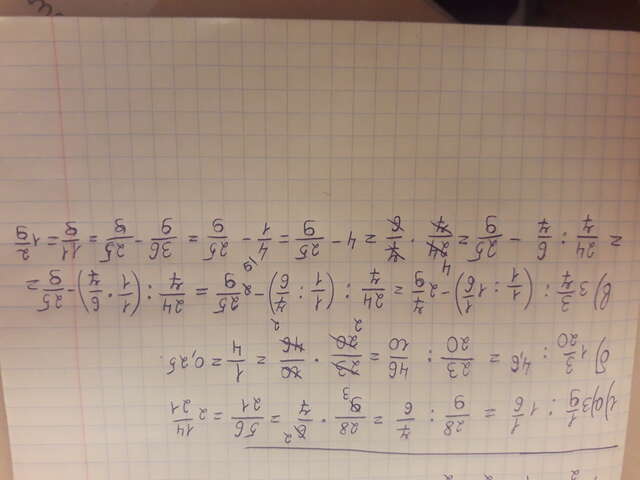 1) а) 3 1/9 : 1 1/6 = 28/9 : 7/6 = 28/9 3 · 6 2/7 = 56/21 = 2 14/21
б) 1 3/20 : 4,6 = 23/20 : 46/10 = 23/20 2 · 10/46 2 = 1/4 = 0,25.
в) 3 3/7 : (1/1 : 1 1/6) - 2 7/9 = 24/7 : (1/1 : 7/6) - 2 25/9 = 24/7 : (1/1 · 6/7) - 25/9 =
= 24/7 : 6/7 - 25/9 = 4 24/7 · 7/6 = 4 - 25/9 = 4\9/1 - 25/9 = 36/9 - 25/9 = 11/9 = 1 2/9